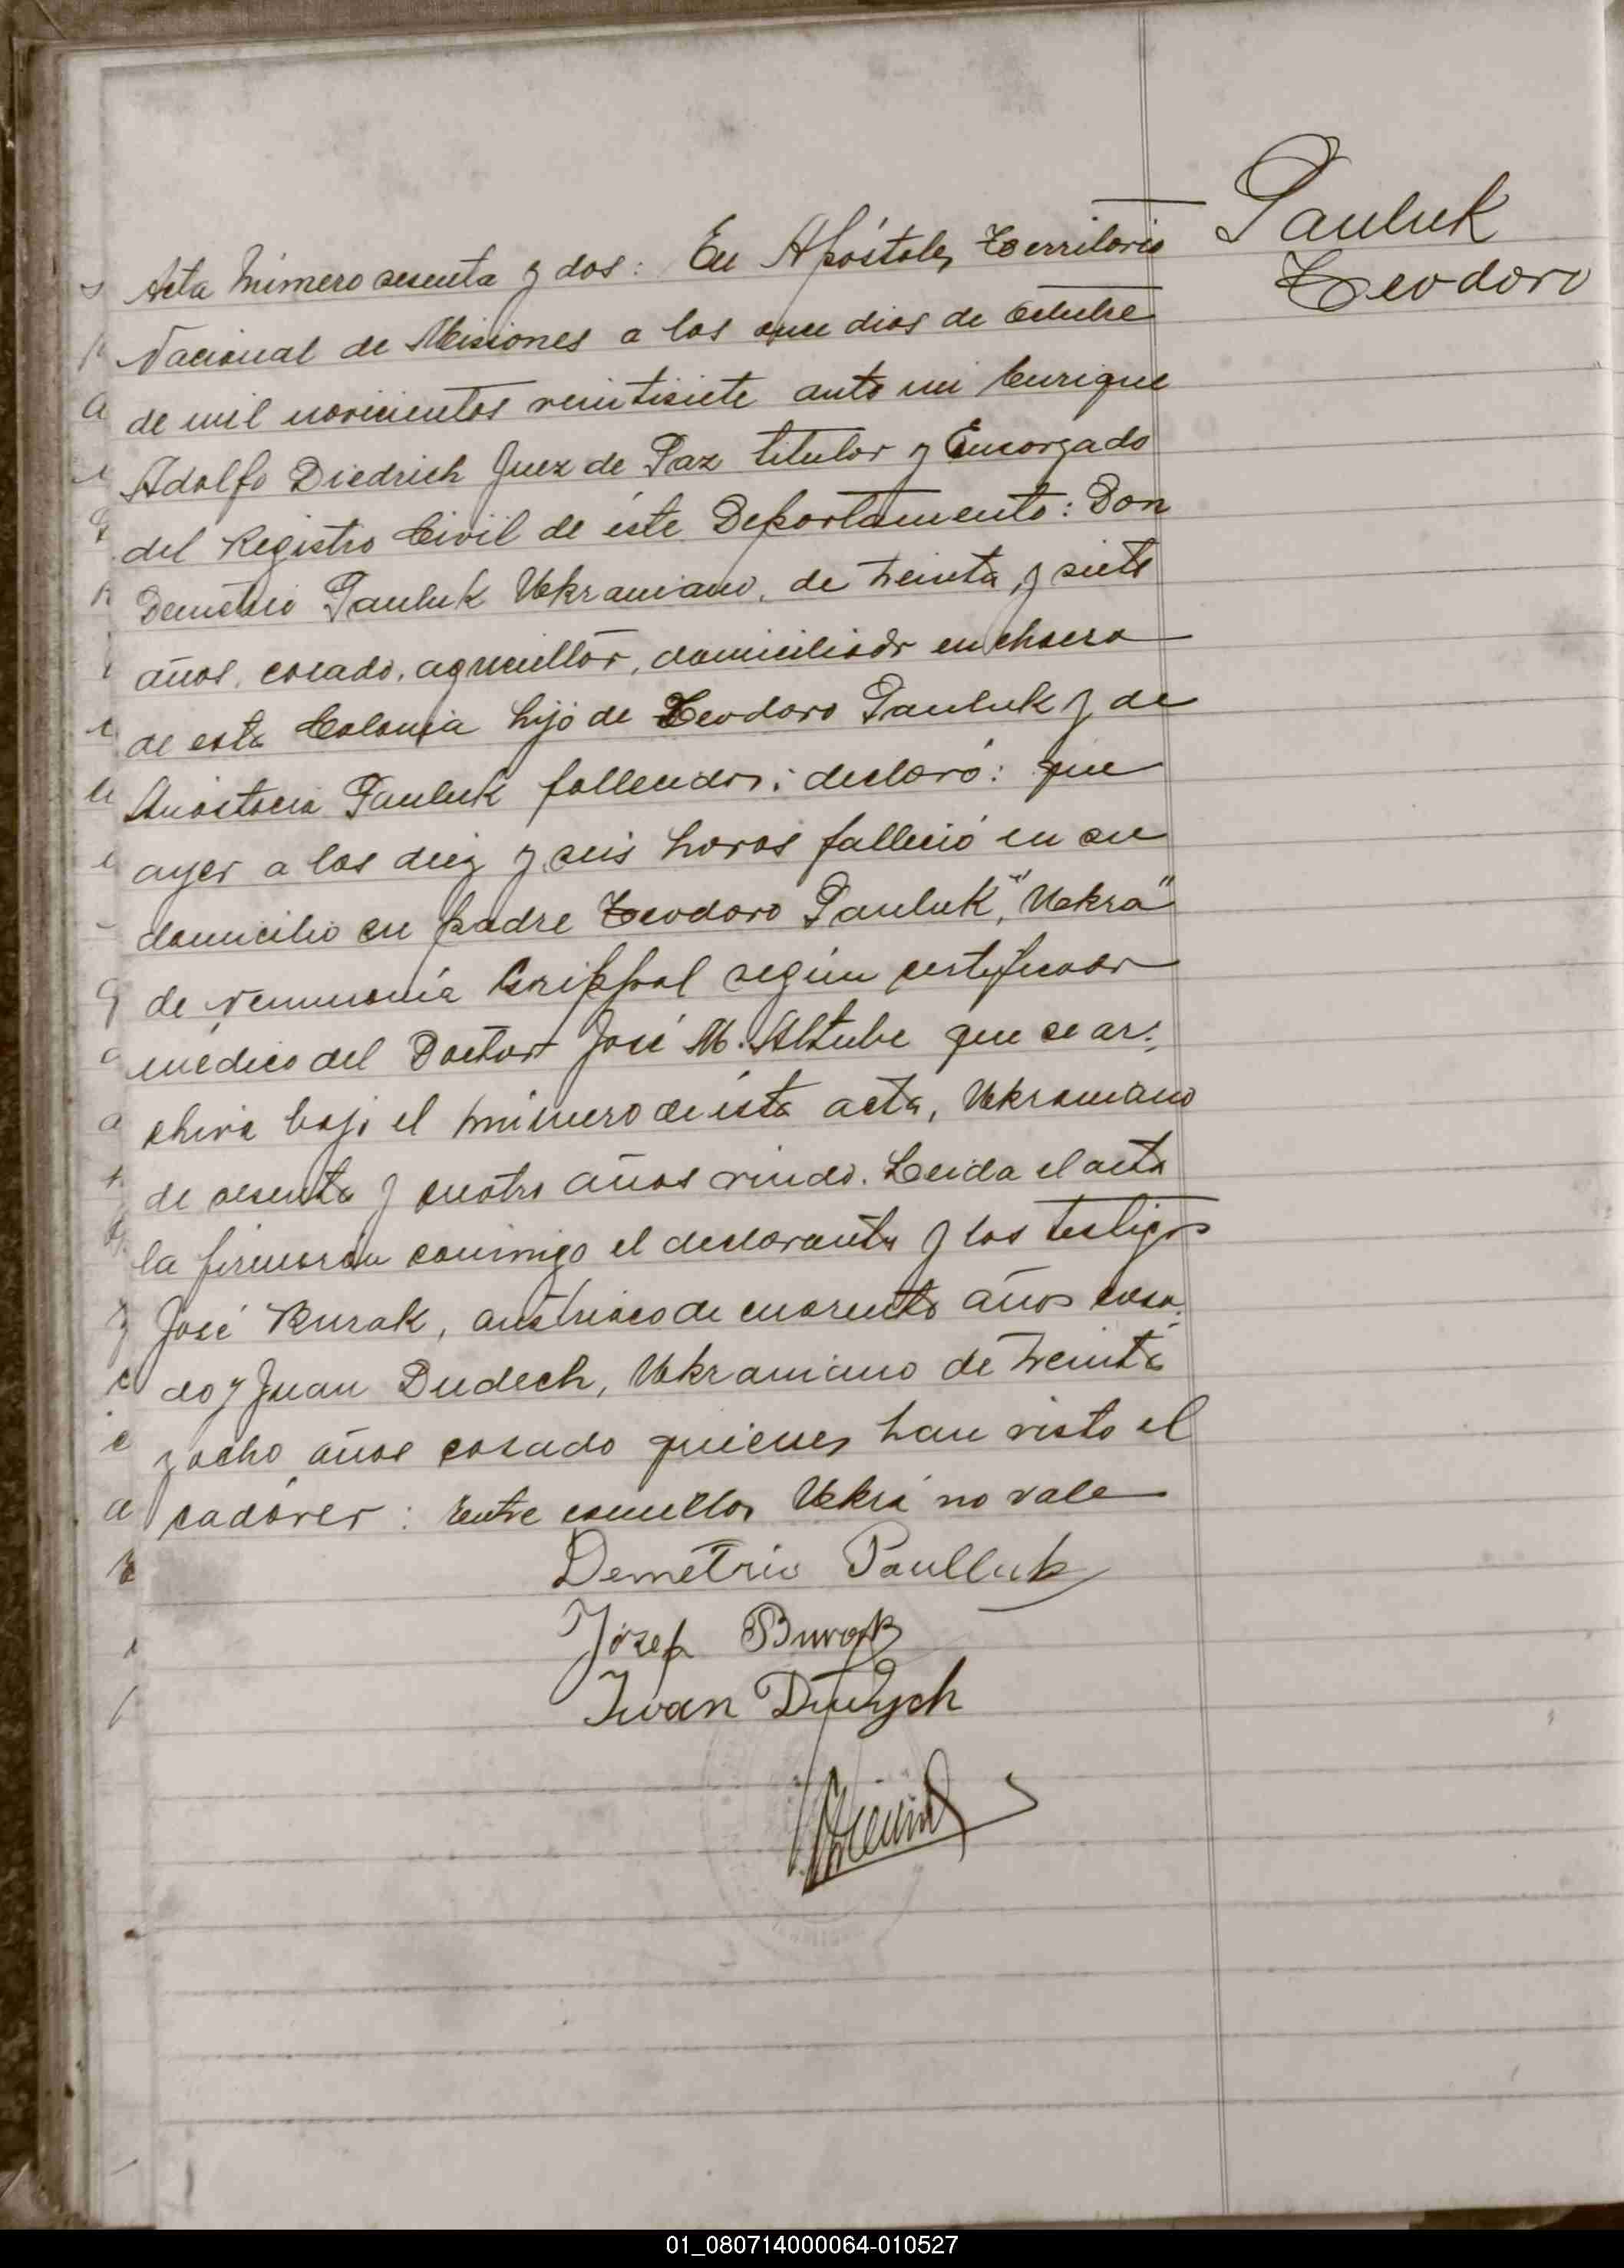 Pauluk
Teodoro
Acta Número sesenta y dos: En Apóstoles, Territorio
Nacional de Misiones a los once dias de Octubre
de mil novicientos veintisiete ante mi Enrique
Adolfo Diedrich Juez de Paz titular y Encargado
del Registro Civil de éste Departamento: Don
Demetrio Pauluk Uckraniano, de treinta y siete
años, casado, agricultor, domiciliado en chacra
de esta Colonia hijo de Teodoro Pauluk y de
Anastacia Pauluk fallecidos; declaró: que
ayer a las diez y seis horas falleció en su
domicilio su padre Teodoro Pauluk, "Uckra"
de Neumonía Grippal según certificado
médico del Doctor José M. Altube que se ar-
chiva bajo el número de ésta acta, Uckraniano
de sesenta y cuatro años viudo. Leida el acta
la firmaron conmigo el declarante y los testigos
José Burak, austriaco de cuarenta años casa-
do y Juan Dudech, Uckraniano de treinta
y ocho años casado quienes han visto el
cadáver: Entre comillas Uckra no vale
Demetrio Paulluk
Józef Burak
Iwan Dudych
01_080714000064-010527